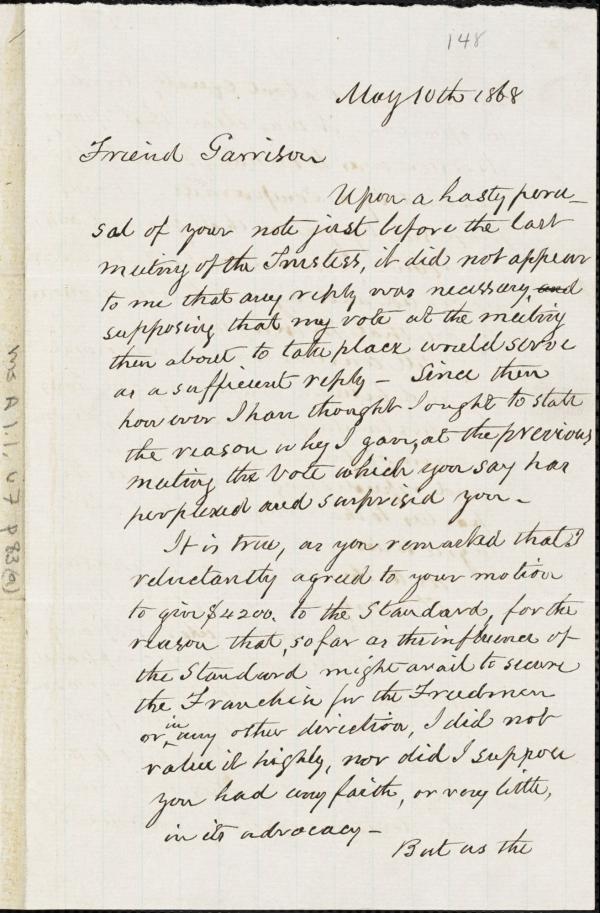 148
May 10th 1868
Friend Garrison
Upon a hasty peru-
sal of your note just before the last
meeting of the Trustees, it did not appear
to me that any reply was necessary, and
supposing that my vote at the meeting
then about to take place would serve
as a sufficient reply - Since then
however I have thought I ought to state
the reason why I gave, at the previous
meeting the vote which you say has
perplexed and surprised you -
It is true, as you remarked that I
reluctantly agreed to your motion
to give $4200. to the Standard, for the
reason that, so far as the influence of
the Standard might avail to secure
the Franchise for the Freedmen
or in any other direction, I did not
value it highly, nor did I suppose
you had any faith, or very little,
in its advocacy -
But as the
Ms A 1.1, v 7 p 83(a)